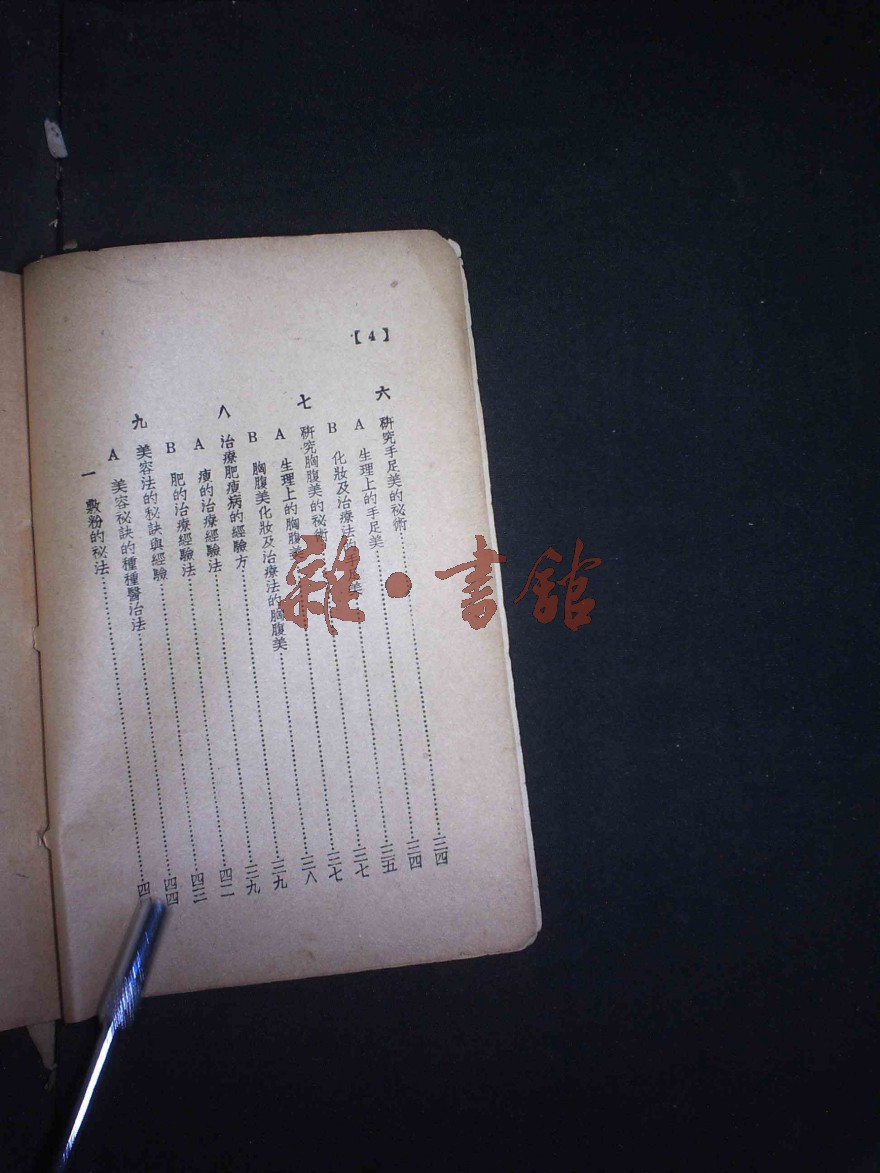 【4】
六 研究手足美的秘術……三四
A 生理上的手足美……三四
B 化妝及治療法的手足美……三五
七 研究胸腹美的秘術……三七
A 生理上的胸腹美……三七
B 胸腹美化妝及治療法的胸腹美……三八
八 治療肥瘦病的經驗方……三九
A 瘦的治療經驗法……三九
B 肥的治療經驗法……四二
九 美容法的秘訣與經驗……四三
A 美容秘訣的種種醫治法……四四
一 敷粉的秘法……四
雜·書館